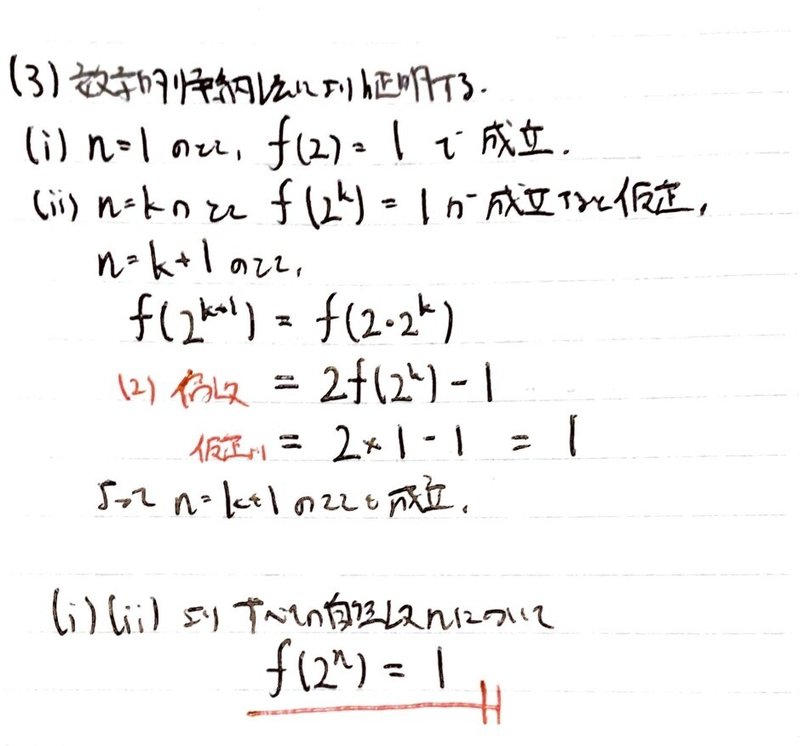 (3) 数学的帰納法により証明する.
(i) n=1 のとき, f(2) = 1 で 成立.
(ii) n=k の とき f(2^k) = 1 が 成立すると仮定,
n=k+1 のとき,
f(2^{k+1}) = f(2・2^k)
(2) 偶数 = 2f(2^k) - 1
仮定より = 2×1 - 1 = 1
よって n=k+1 のときも成立.
(i)(ii) より すべての自然数nについて
f(2^n) = 1